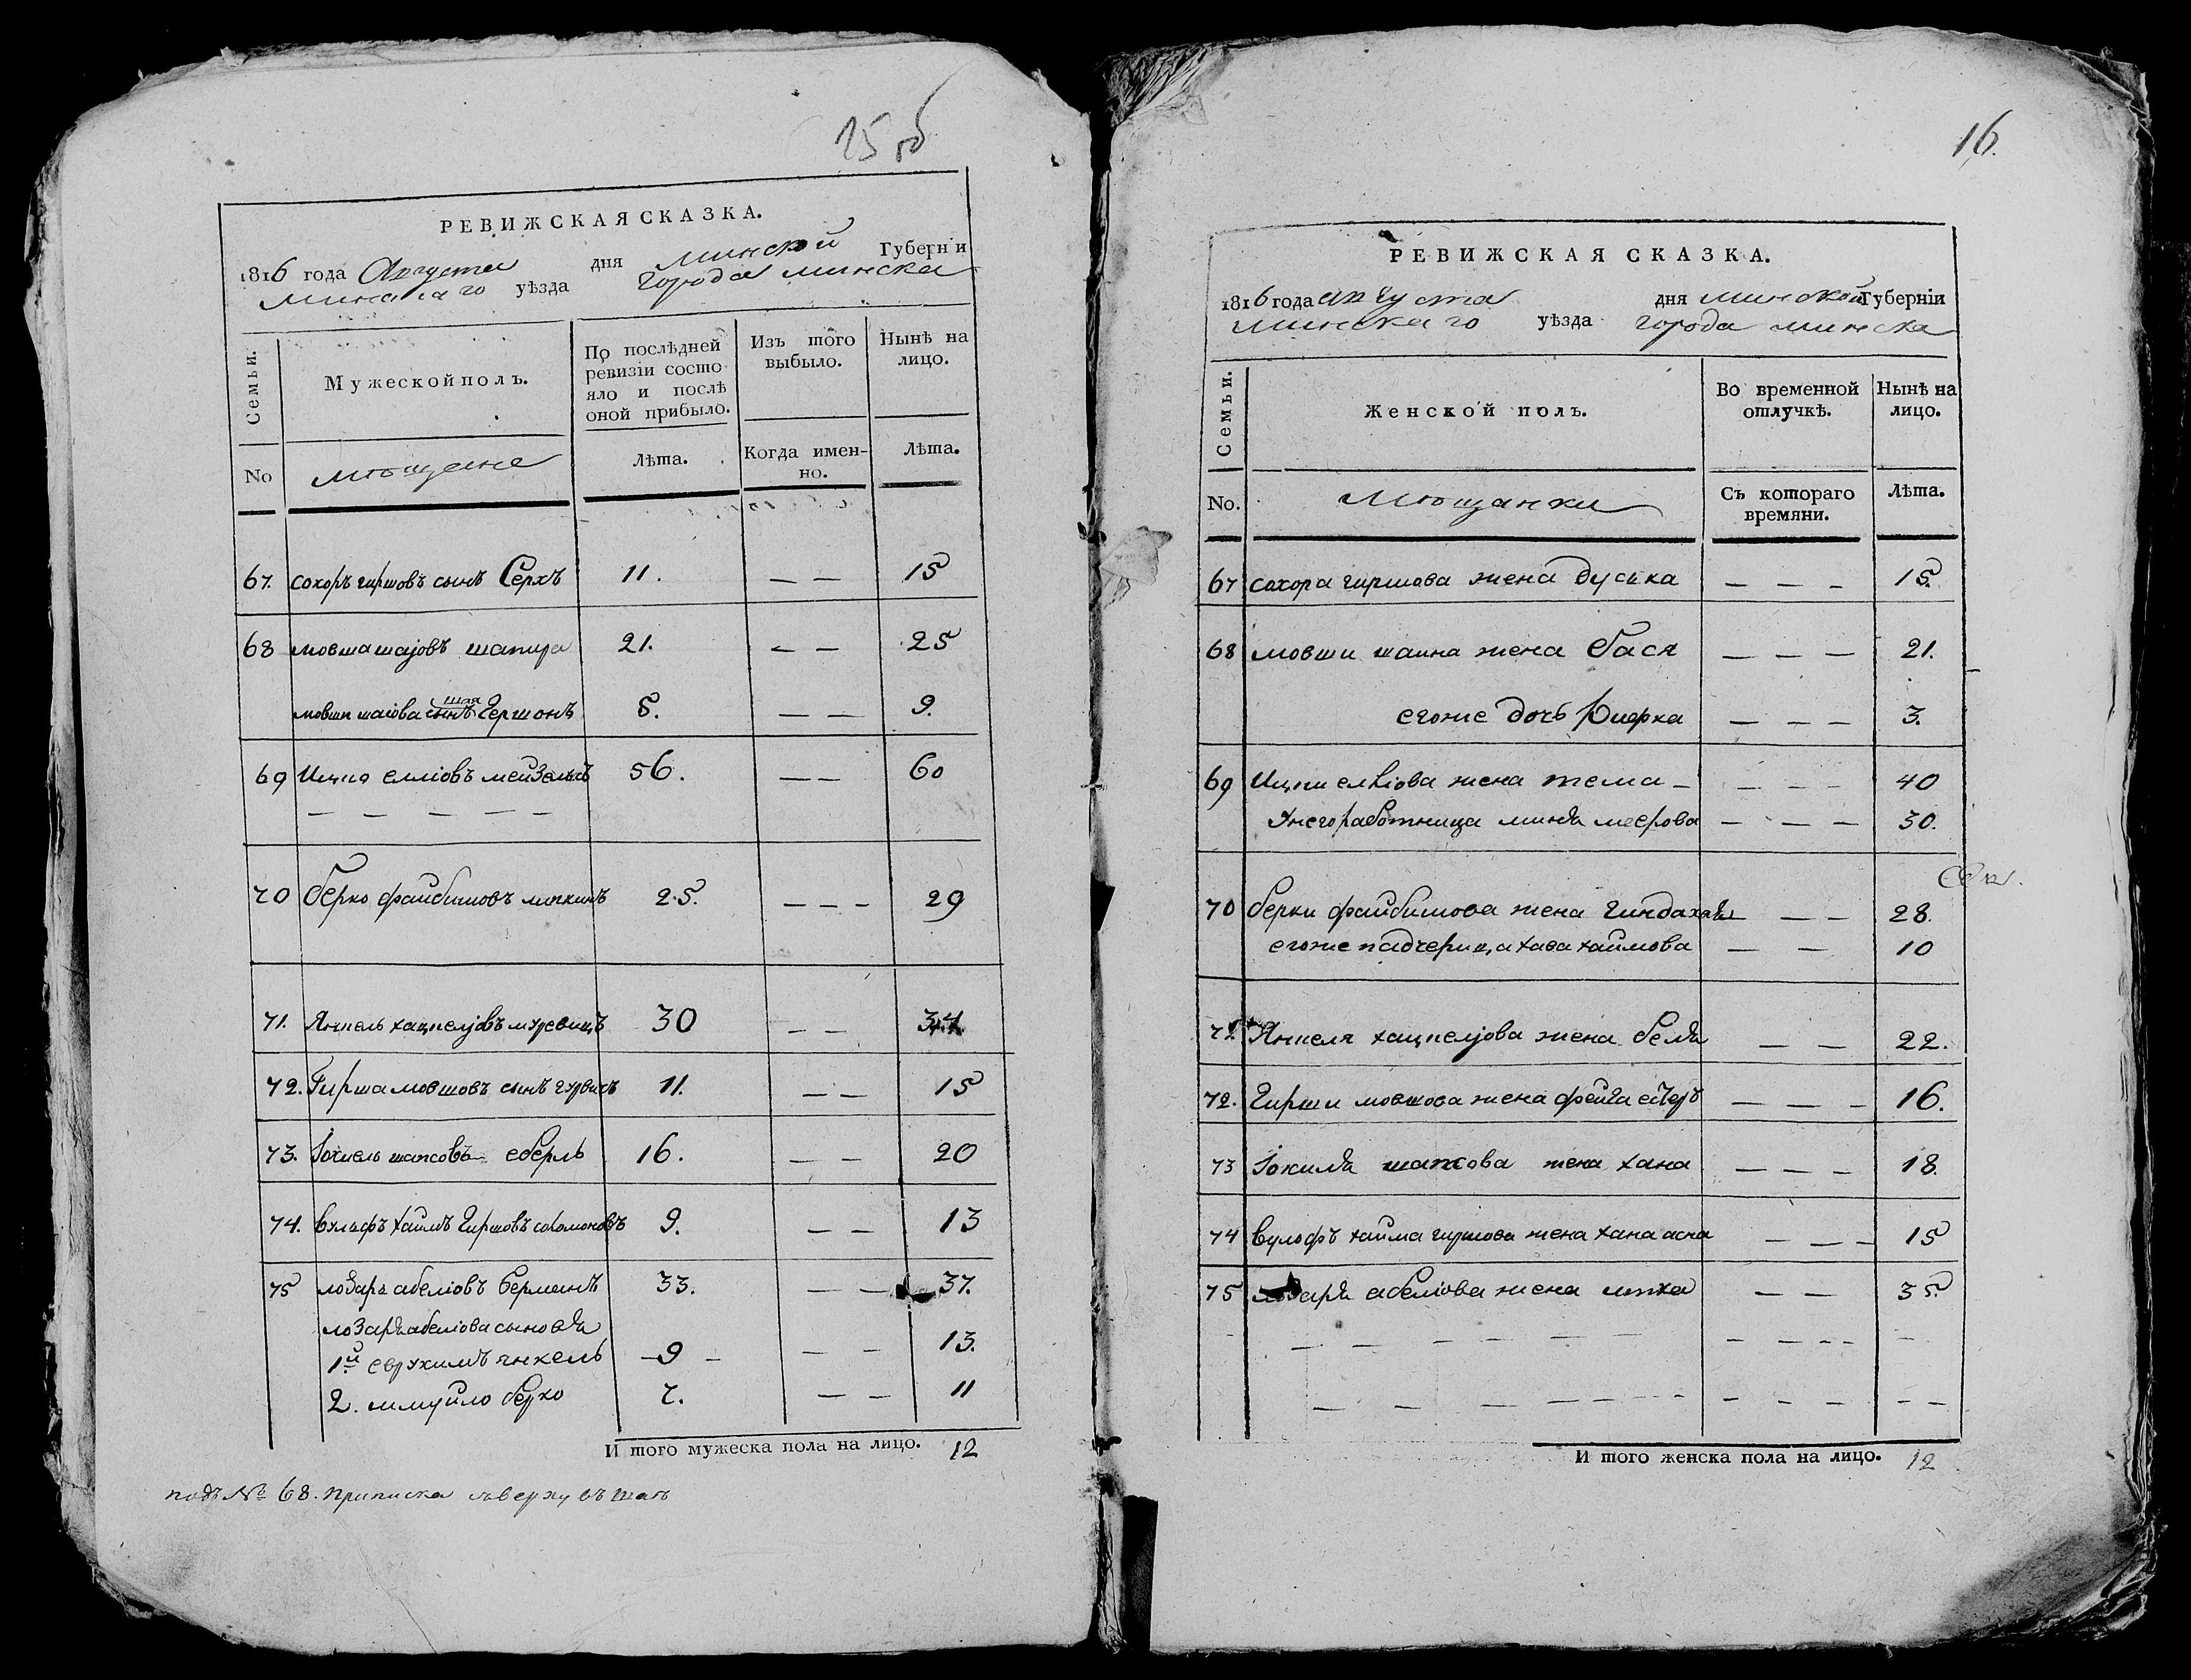 15 об
РЕВИЖСКАЯ СКАЗКА.
1816 года Августа дня минской Губерніи
минскаго уѣзда города минска
Семьи.
Мужеской полъ.
По послѣдней ревизіи состояло и послѣ оной прибыло.
Изъ того выбыло.
Нынѣ на лицо.
No
мѣщане
Лѣта.
Когда именно.
Лѣта.
67. сохоръ гиршовъ сынъ Серхъ 11. — — 15
68 мовша шаjовъ шапира 21. — — 25
шая
мовши шаіова сынъ Гершонъ 5. — — 9.
69 Ицка елліовъ мейзельъ 56. — — 60
— — — — —
70 берко фаибишовъ липкинъ 25. — — — 29
71. Янкель хацкелjовъ гуревицъ 30 — — 34
72. Гирша мовшовъ сынъ гурвичъ 11. — — 15
73. Іохиель шапсовъ еберль 16. — — 20
74. вульфъ хаимъ Гиршовъ соломоновъ 9. — — 13
75 лозаръ абеліовъ берманъ 33. — — 37.
лозаря абеліова сыновья
1й ефрухимъ янкель — 9 — — — 13.
2. шмуйло берко 7. — — 11
И того мужеска пола на лицо. 12
подъ № 68. приписка сверху въ шая
16.
РЕВИЖСКАЯ СКАЗКА.
1816 года августа дня минской Губерніи
минскаго уѣзда города минска
Семьи.
Женской полъ.
Во временной отлучкѣ.
Нынѣ на лицо.
No.
мѣщанки
Съ котораго времяни.
Лѣта.
67 сохора гиршова жена дуська — — — 15.
68 мовши шаина жена бася — — — 21.
егоже дочь ривка — — — 3.
69 Ицки елліова жена тема — — — — 40
У него работница минья меерова — — — 30.
70 берки фаибишова жена гинда хая — — 28.
егоже падчерица хава хаимова — — 10
71 Янкеля хацкелjова жена бейля — — 22.
72. гирши мовшова жена фейга естеръ — — — 16.
73 Іохиля шапсова жена хана — — — 18.
74 вульфъ хаима гиршова жена хана асна — — — 15
75 лозаря абеліова жена итка — — 35.
И того женска пола на лицо. 12